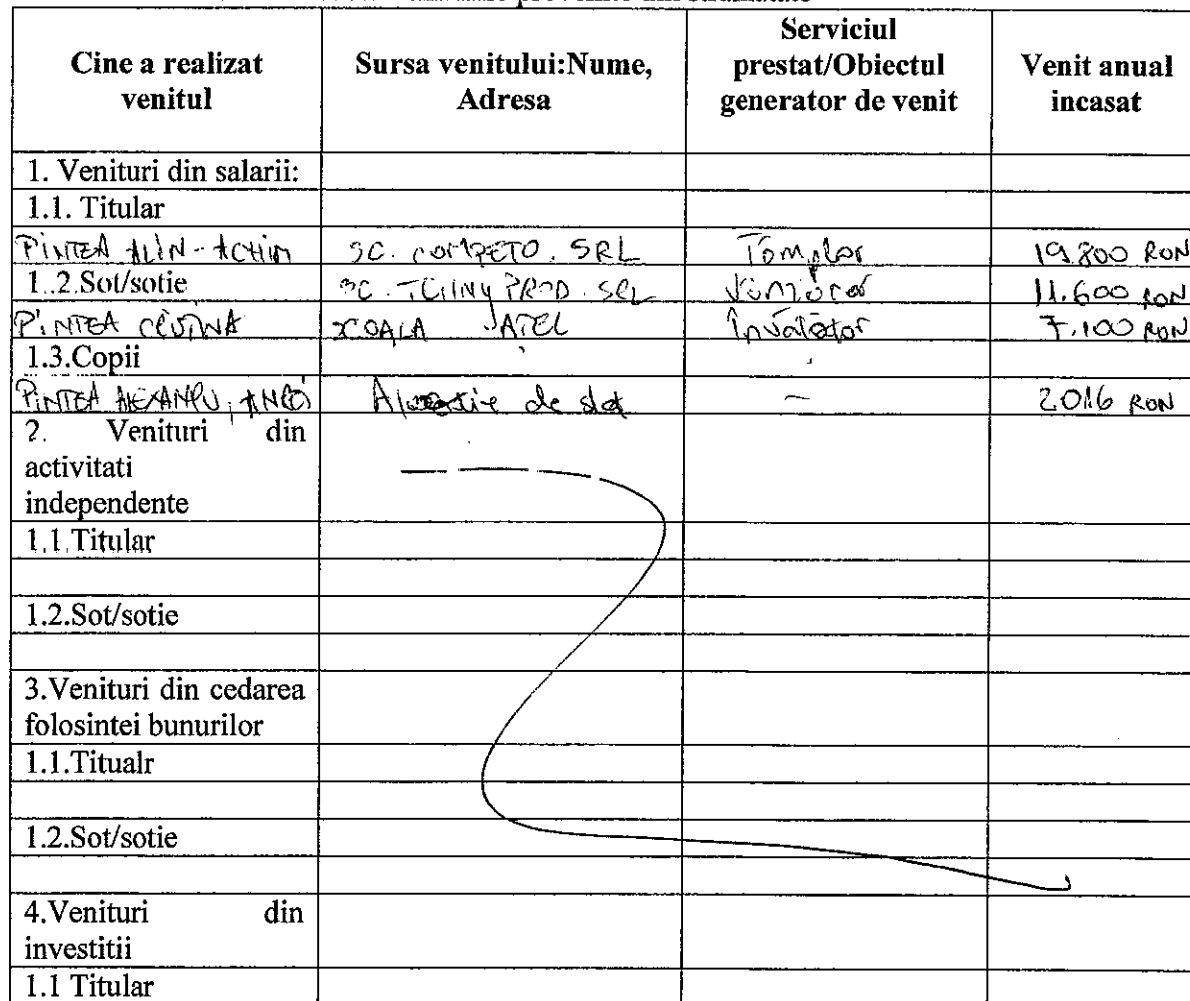 Cine a realizat venitul
Sursa venitului:Nume, Adresa
Serviciul prestat/Obiectul generator de venit
Venit anual incasat
1. Venituri din salarii:
1.1. Titular
PINTEA ALIN-ACHIM SC. COMPETO. SRL Tâmplar 19.800 RON
1..2.Sot/sotie SC. PROD. SRL 11.600 RON
PINTEA SCOALA Învățător 7.100 RON
1.3.Copii
PINTEA de stat — 2016 RON
2. Venituri din
activitati
independente
1.1.Titular
1.2.Sot/sotie
3.Venituri din cedarea
folosintei bunurilor
1.1.Titualr
1.2.Sot/sotie
4.Venituri din
investitii
1.1 Titular